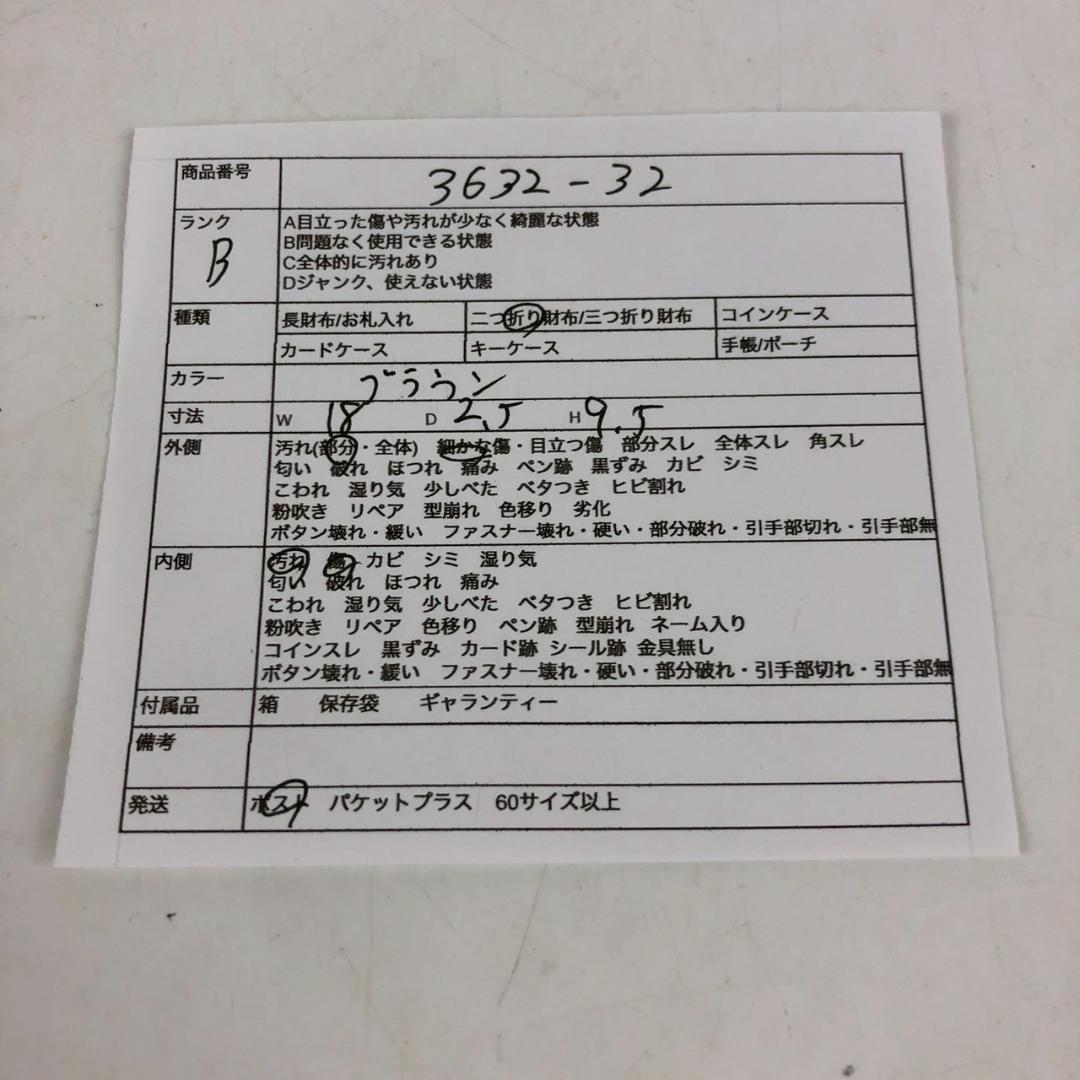 商品番号 3632-32
ランク B
A目立った傷や汚れが少なく綺麗な状態
B問題なく使用できる状態
C全体的に汚れあり
Dジャンク、使えない状態
種類 長財布/お札入れ 二つ折り財布/三つ折り財布 コインケース
カードケース キーケース 手帳/ポーチ
カラー ブラウン
寸法 W 18 D 2.5 H 9.5
外側 汚れ(部分・全体) 細かな傷・目立つ傷 部分スレ 全体スレ 角スレ
匂い 破れ ほつれ 痛み ペン跡 黒ずみ カビ シミ
こわれ 湿り気 少しべた ベタつき ヒビ割れ
粉吹き リペア 型崩れ 色移り 劣化
ボタン壊れ・緩い ファスナー壊れ・硬い・部分破れ・引手部切れ・引手部無
内側 汚れ 傷 カビ シミ 湿り気
匂い 破れ ほつれ 痛み
こわれ 湿り気 少しべた ベタつき ヒビ割れ
粉吹き リペア 色移り ペン跡 型崩れ ネーム入り
コインスレ 黒ずみ カード跡 シール跡 金具無し
ボタン壊れ・緩い ファスナー壊れ・硬い・部分破れ・引手部切れ・引手部無
付属品 箱 保存袋 ギャランティー
備考
発送 ポスト パケットプラス 60サイズ以上